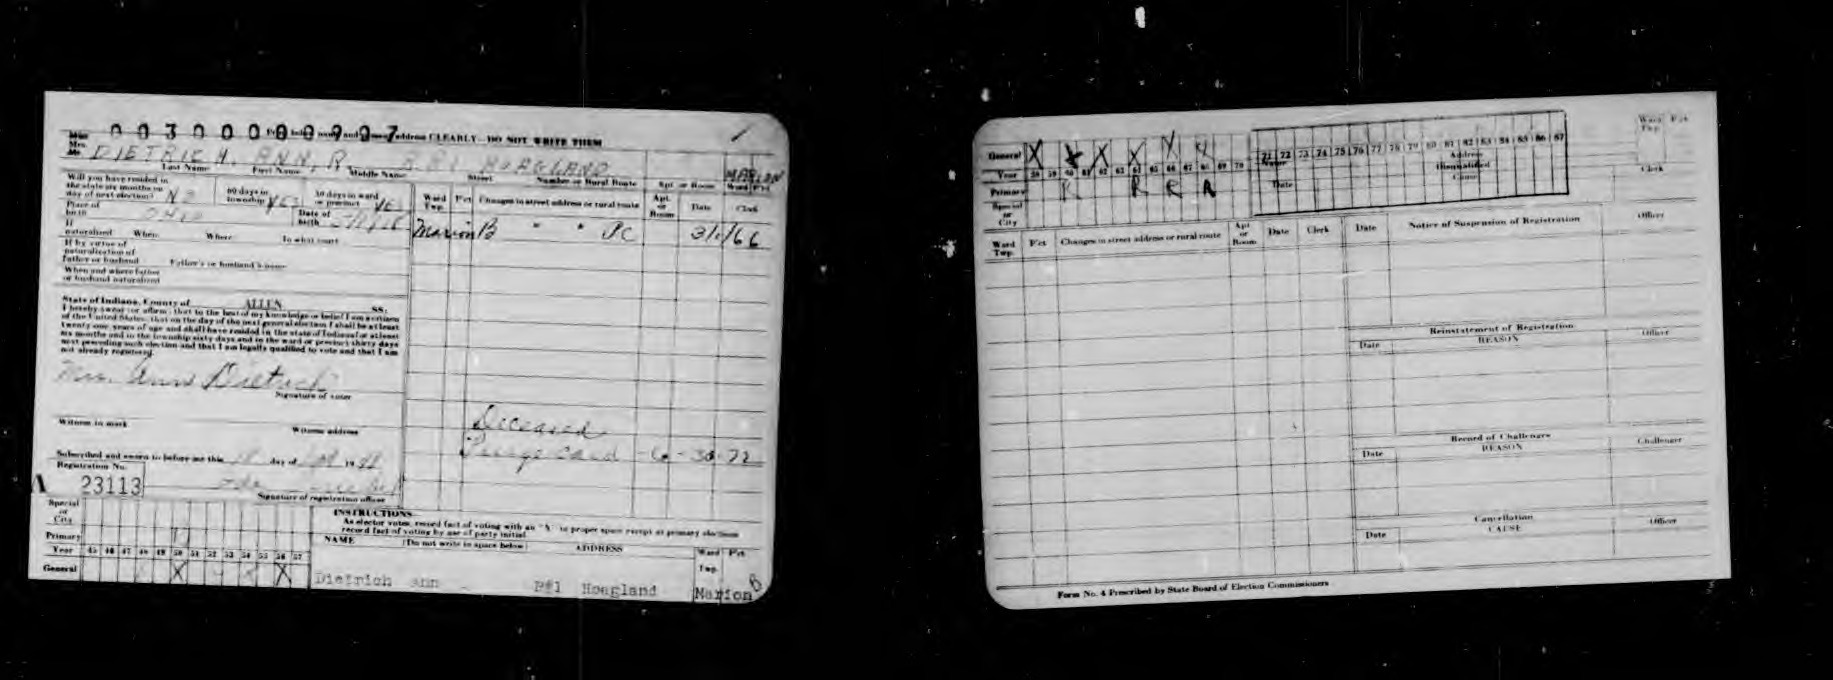 Miss
Mrs.
Mr.
address CLEARLY - DO NOT WRITE THEM
DIETRICH, ANN, R. RR1 HOAGLAND MARION
Last Name First Name Middle Name Street Number or Rural Route Apt. or Room Ward Pct.
Will you have resided in
the state six months on
day of next election?
60 days in
township YES
30 days in ward
or precinct YES
Place of
birth OHIO
Date of
birth
If
naturalized When Where In what court
If by virtue of
naturalization of
father or husband Father's or husband's name
When and where father
or husband naturalized
State of Indiana, County of ALLEN SS:
I hereby swear (or affirm) that to the best of my knowledge or belief I am a citizen
of the United States; that on the day of the next general election I shall be at least
twenty-one years of age and shall have resided in the state of Indiana for at least
six months and in the township sixty days and in the ward or precinct thirty days
next preceding such election and that I am legally qualified to vote and that I am
not already registered.
Mrs. Ann Dietrich
Signature of voter
Witness to mark Witness address
Subscribed and sworn to before me this day of 19
Registration No.
A 23113
Signature of registration officer
Ward Twp. Pct. Changes in street address or rural route Apt. or Room Date Clerk
Marion B " " PC 3/1/66
Deceased
Purge Card - 6 - 30 - 72
Special
or
City
Primary
Year 45 46 47 48 49 50 51 52 53 54 55 56 57
General X X
INSTRUCTIONS
As elector votes, record fact of voting with an "X" in proper space except at primary elections
record fact of voting by use of party initial
NAME (Do not write in space below) ADDRESS Ward Twp. Pct.
Dietrich Ann R#1 Hoagland Marion B
General X X X X
Year 58 59 60 61 62 63 64 65 66 67 68 69 70
Primary R R R R
Special
or
City
71 72 73 74 75 76 77 78 79 80 81 82 83 84 85 86 87
Name Address
Disqualified
Date Cause
Ward Twp. Pct.
Clerk
Ward Twp. Pct. Changes in street address or rural route Apt or Room Date Clerk
Date Notice of Suspension of Registration Officer
Reinstatement of Registration
Date REASON Officer
Record of Challenges
Date REASON Challenger
Cancellation
Date CAUSE Officer
Form No. 4 Prescribed by State Board of Election Commissioners